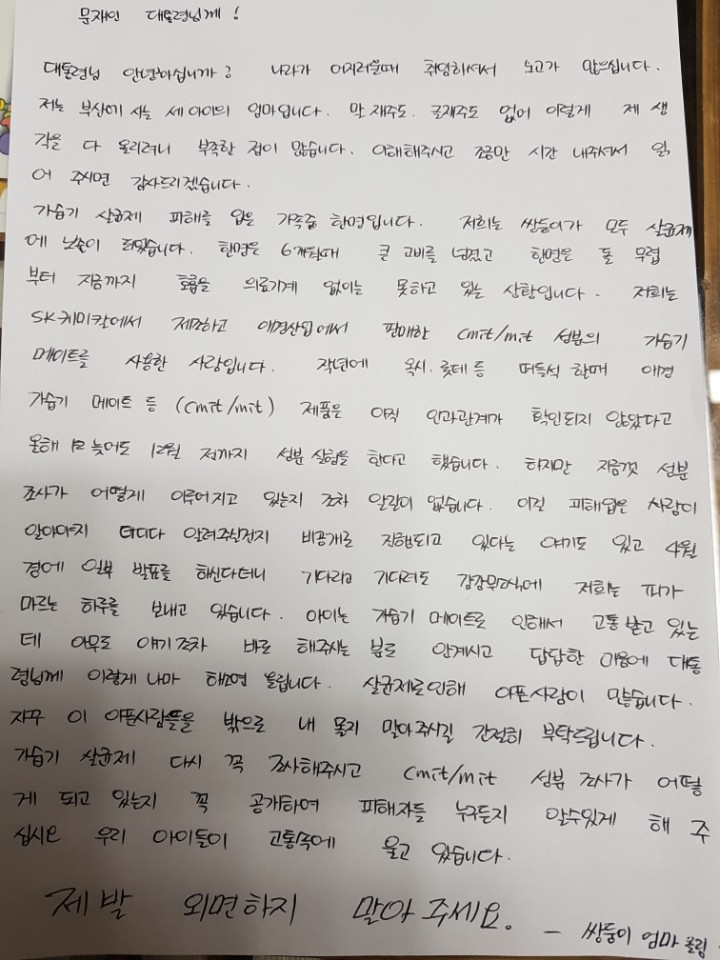 문재인 대통령님께!
대통령님 안녕하십니까? 나라가 어지러울때 취임하셔서 노고가 많으십니다.
저는 부산에 사는 세아이의 엄마입니다. 말재주도. 글재주도 없어 이렇게 제 생
각을 다 올리려니 부족한 점이 많습니다. 이해해주시고 조금만 시간 내주셔서 읽
어 주시면 감사드리겠습니다.
가습기 살균제 피해를 입은 가족중 한명입니다. 저희는 쌍둥이가 모두 살균제
에 노출이 되었습니다. 한명은 6개월때 큰 고비를 넘겼고 한명은 돌 무렵
부터 지금까지 호흡을 의료기계 없이는 못하고 있는 상황입니다. 저희는
SK케미칼에서 제조하고 애경산업에서 판매한 cmit/mit 성분의 가습기
메이트를 사용한 사람입니다. 작년에 옥시.롯데 등 떠들석 할때 애경
가습기 메이트 등 (cmit/mit) 제품은 아직 인과관계가 확인되지 않았다고
올해 늦어도 12월 전까지 성분 실험을 한다고 했습니다. 하지만 지금껏 성분
조사가 어떻게 이루어지고 있는지 조차 알길이 없습니다. 이건 피해입은 사람이
알아야지 더디다 알려주실건지 비공개로 진행되고 있다는 얘기도 있고 4월
경에 일부 발표를 하신다더니 기다리고 기다려도 감감무소식에 저희는 피가
마르는 하루를 보내고 있습니다. 아이는 가습기 메이트로 인해서 고통 받고 있는
데 아무도 얘기조차 바로 해주시는 분도 안계시고 답답한 마음에 대통
령님께 이렇게나마 하소연 올립니다. 살균제로인해 아픈사람이 많습니다.
자꾸 이 아픈사람들을 밖으로 내 몰지 말아주시길 간절히 부탁드립니다.
가습기 살균제 다시 꼭 조사해주시고 cmit/mit 성분 조사가 어떻
게 되고 있는지 꼭 공개하여 피해자들 누구든지 알수있게 해 주
십시요 우리 아이들이 고통속에 울고 있습니다.
제발 외면하지 말아 주세요.
- 쌍둥이 엄마 올림.